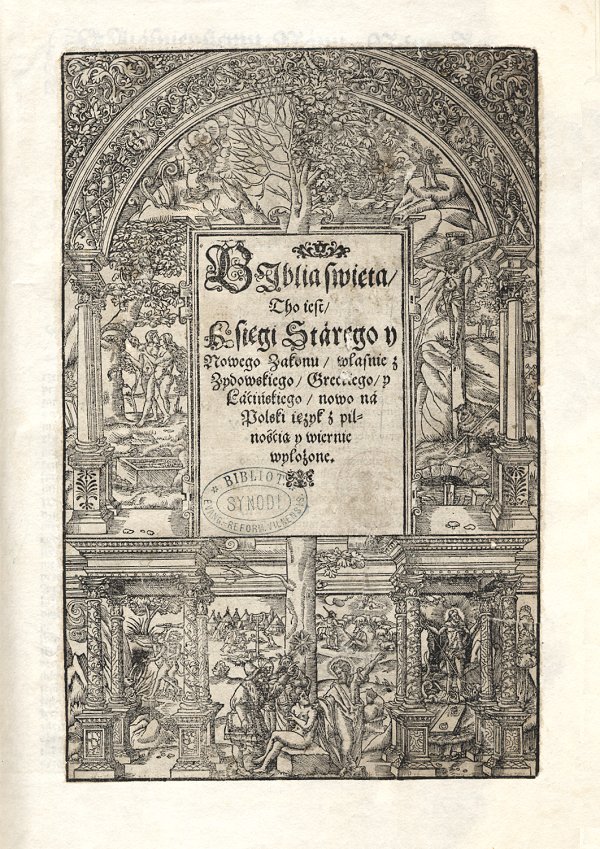 Biblia swięta/
Tho iest/
Księgi Stárego y
Nowego Zakonu/ własnie z
Zydowskiego/ Greckiego/ y
Łácińskiego/ nowo ná
Polski ięzyk z pil-
nością y wiernie
wyłożone.
* BIBLIOT
SYNODI
EVANG.-REFORM. VILNENSIS